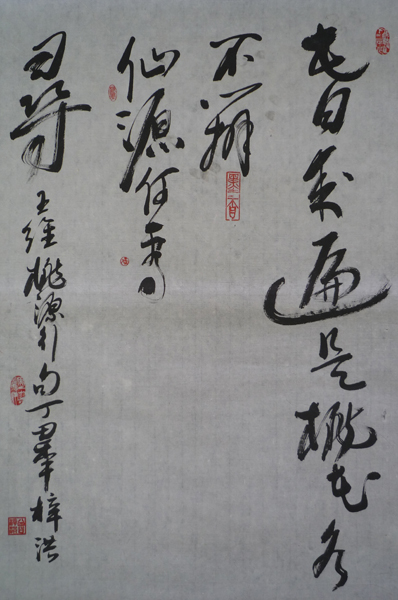 春来遍是桃花水
不辨
仙源何處
尋 王維桃源行句丁酉年梓洪